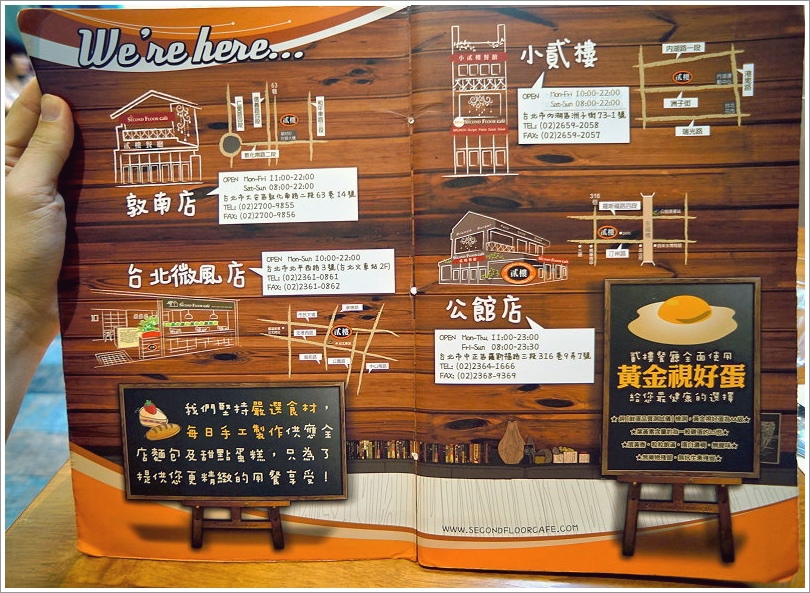 We're here...
SECOND FLOOR Cafe
貳樓餐廳
63
巷
敦化南路二段
貳樓
敦南店
OPEN Mon-Fri 11:00-22:00
Sat-Sun 08:00-22:00
台北市大安區敦化南路二段63巷14號
TEL: (02)2700-9855
FAX: (02)2700-9856
台北微風店
OPEN Mon-Sun 10:00-22:00
台北市北平西路3號(台北火車站2F)
TEL: (02)2361-0861
FAX: (02)2361-0862
SECOND FLOOR Cafe
貳樓
公園路
中山南路
我們堅持嚴選食材,
每日手工製作供應全
店麵包及甜點蛋糕,只為了
提供您更精緻的用餐享受!
小貳樓餐館
小貳樓
OPEN Mon-Fri 10:00-22:00
Sat-Sun 08:00-22:00
台北市內湖區洲子街73-1號
TEL: (02)2659-2058
FAX: (02)2659-2057
內湖路一段
貳樓
港墘路
洲子街
瑞光路
貳樓
公館店
OPEN Mon-Thu, 11:00-23:00
Fri-Sun 08:00-23:30
台北市中正區羅斯福路三段316巷9弄7號
TEL: (02)2364-1666
FAX: (02)2368-9369
316
巷
羅斯福路四段
貳樓
汀州路
貳樓餐廳全面使用
黃金視好蛋
給您最健康的選擇
WWW.SECONDFLOORCAFE.COM